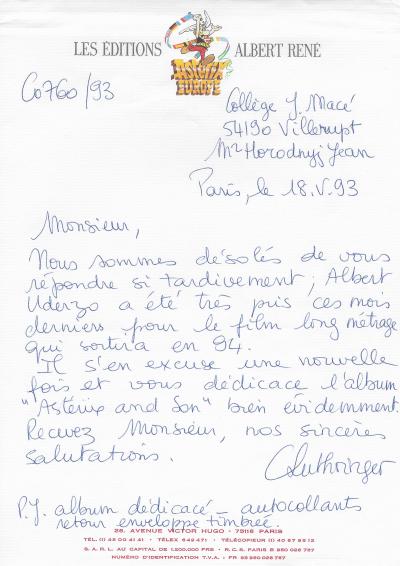 LES ÉDITIONS ALBERT RENÉ
ASTÉRIX
EUROPE
Co760/93
Collège J. Macé
54190 Villerupt
Mr Horodnyj Jean
Paris, le 18.V.93
Monsieur,
Nous sommes désolés de vous
répondre si tardivement ; Albert
Uderzo a été très pris ces mois
derniers pour le film long métrage
qui sortira en 94.
Il s'en excuse une nouvelle
fois et vous dédicace l'album
"Astérix and Son" bien évidemment.
Recevez Monsieur, nos sincères
salutations.
CLuthringer
P.J. album dédicacé - autocollants
retour enveloppe timbrée.
26, AVENUE VICTOR HUGO · 75116 PARIS
S.A.R.L. AU CAPITAL DE 1.200.000 FRS · R.C.S. PARIS B 950 026 757
NUMÉRO D'IDENTIFICATION T.V.A. : FR 93 950 026 757